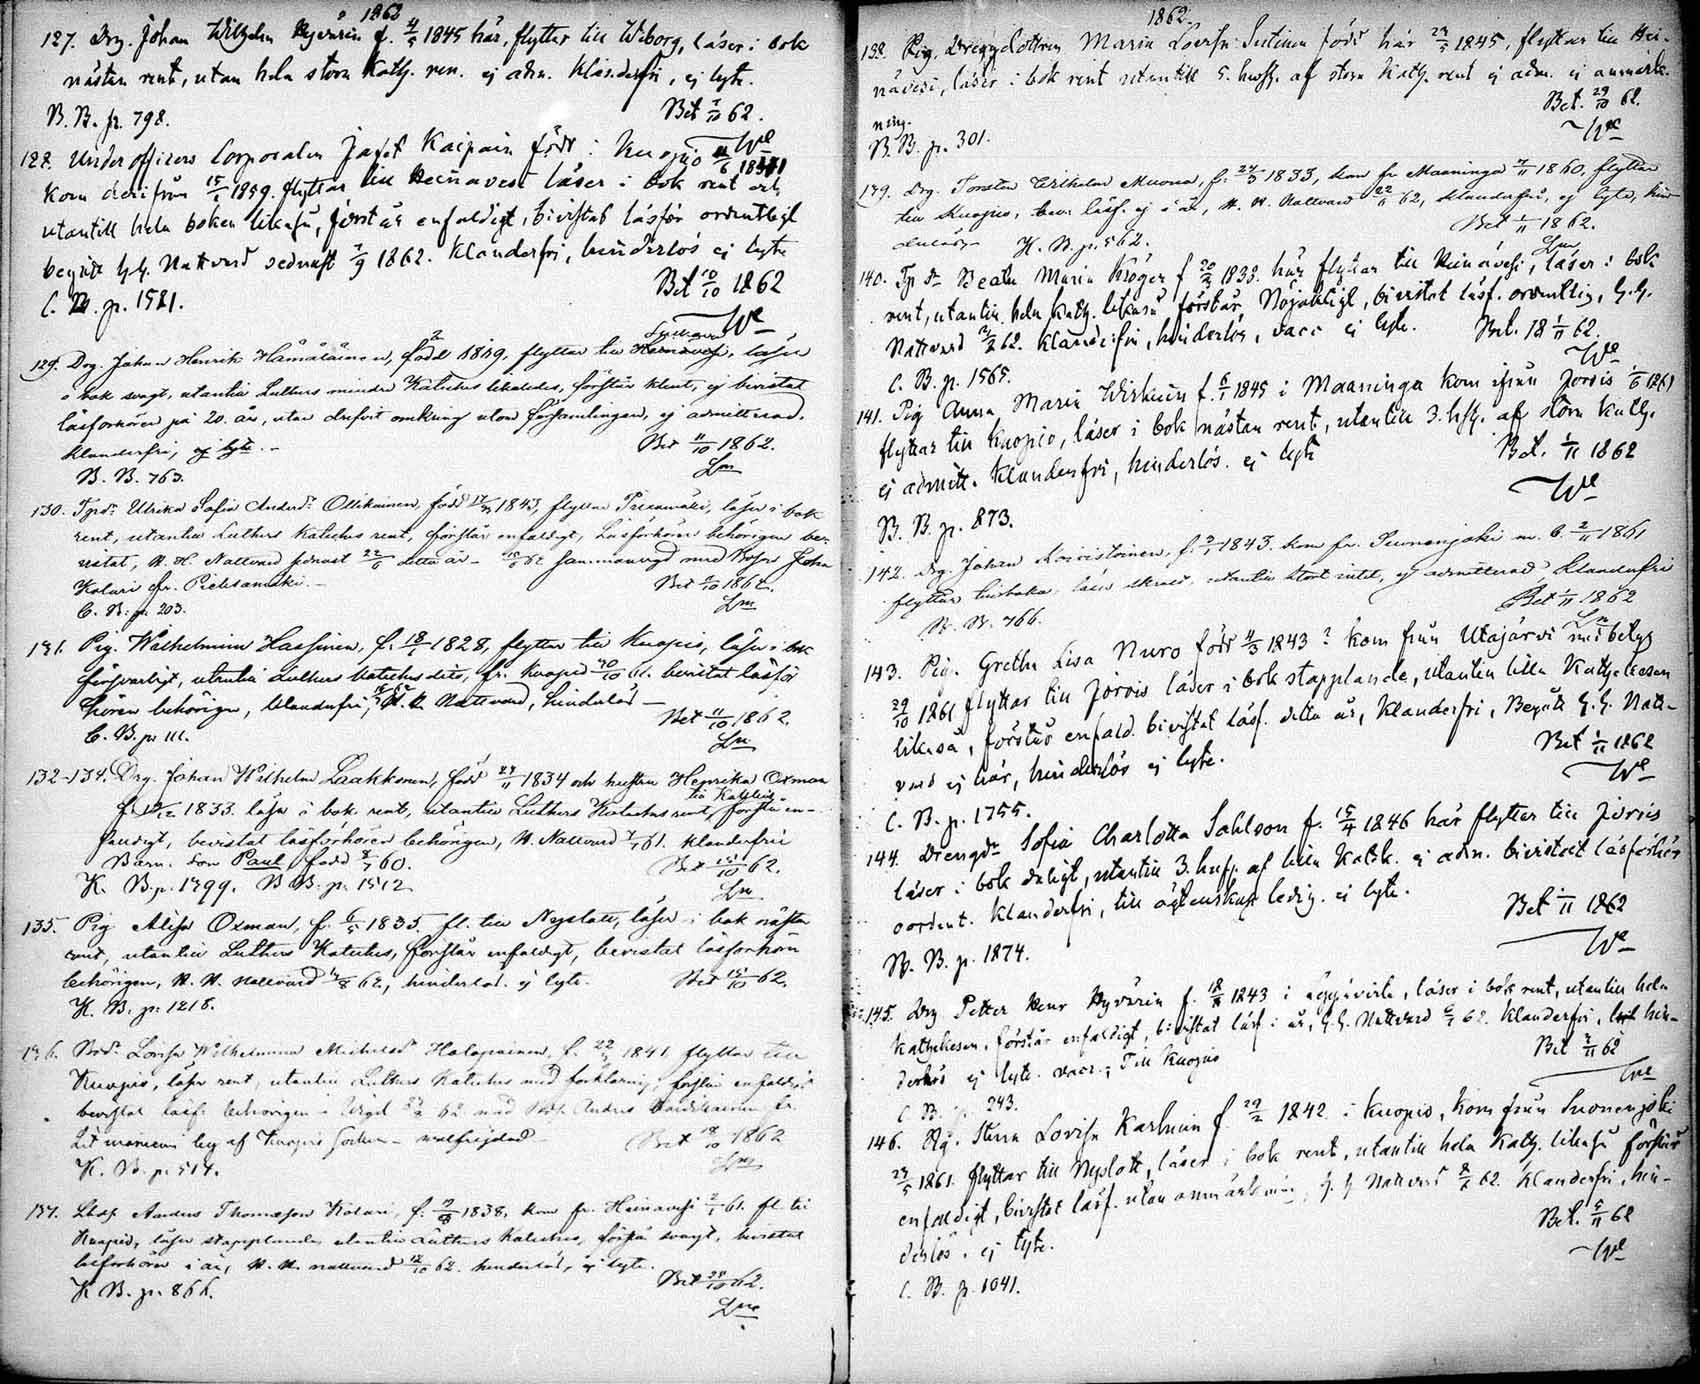 1862
127. Drg. Johan Wilhelm Hyvärin f. 4/5 1845 här, flyttar till Wiborg, läser i bok
nästan rent, utan hela stora Kath. ren. ej adm. Klanderfri, ej lyte.
B. B. p. 798. Bet 7/10 62.
We
128. Underofficers Corporalen Jafet Kaipain född i Kuopio
kom derifrån 15/ 1859. flyttar till Heinävesi läser i bok rent och
utantill hela boken likaså, förstår enfaldigt, bivistat läsför ordentligt
begått H. H. Nattvard sednast 7/9 1862. Klanderfri, hinderlös ej lyte
C. B. p. 1581. Bet 10/10 1862
We
129. Drg. Johan Henrik Hämäläinen, född 1819, flyttar till, läser
i bok svagt, utantill Luthers mindre Katches likaledes, förstår klent, ej bivistat
läsförhören på 20. år, utan dufvit omkring utom församlingen, ej admitterad.
Klanderfri, ej lyte. - Bet 11/10 1862.
B. B. 763. Lm
130. Tjrdr Ulrika Sofia Andersdr Ollikainen, född 1843, flyttar, läser i bok
rent, utantill Luthers Katches rent, förstår enfaldigt, Läsförhören behörigen be-
vistat, H. H. Nattvard sednast 22/6 detta år - 62 sammanvigd med Johan
Kolari fr. Pieksamäki. - Bet 1862.
C. B. p. 203. Lm
131. Pig. Wilhelmina Hassinen, f. 18/ 1828, flyttar till Kuopio, läser i bok
försvarligt, utantill Luthers Katches dito, fr. Kuopio /10 61. bevistat läsför
hören behörigen, klanderfri, H. H. Nattvard, hinderlös - Bet 11/10 1862.
C. B. p. 111. Lm
132-134. Drg. Johan Wilhelm Laakkonen, född 1834 och hustru Henrika Oxman
f. /12 1833. läser i bok rent, utantill Luthers Katches rent, förstår en-
faldigt, bevistat läsförhören behörigen, H. Nattvard 61. klanderfri
Barn. Son Paul, född 8/ 60. Bet 15/10 62.
K. B. p. 1399. B. B. p. 1512. Lm
135. Pig Alisa Oxman, f. 6/5 1835. fl. till Nyslott, läser i bok nästan
rent, utantill Luthers Katches, förstår enfaldigt, bevistat läsförhören
behörigen, H. H. nattvard 62, hinderlös. ej lyte. Bet 15/10 62.
K. B. p. 1218.
136. Lovisa Wilhelmina Michelsdr Halapainen, f. 22/ 1841, flyttar till
Kuopio, läser rent, utantill Luthers Katches med förklaring, förstår enfaldigt
bevistat läsf. behörigen - Vigd 62 med Anders
af Kuopio Socken - Bet 18/10 1862
K. B. p. 514. Lm
137. Anders Thomasson Kolari, f. 1838, kom fr. Heinävesi 61. fl. till
Kuopio, läser stapplande, utantill Luthers Katches, förstår svagt, bevistat
läsförhören i år, H. H. nattvard 12/10 62. hinderlös, ej lyte.
K. B. p. 866. Bet 28/10 62.
Lm
1862.
138. Pig. Drengdottren Maria Lovisa Sutinen född här 24/5 1845, flyttar till Hei-
nävesi, läser i bok rent utantill 5. hufst. af stora Kath. rent ej adm. ej anmärk-
ning. Bet. 29/10 62.
B. B. p. 301. We
139. Drg. Torsten Wilhelm Muona, f. 24/3 1833, kom fr Maaninga /11 1860, flyttar
till Kuopio, bev. läsf. ej i år, H. H. Nattvard 62, klanderfri, ej lyte, hin-
derlös. H. B. p. 562. Bet 1/11 1862.
Lm
140. Tjdr Beata Maria Kröger f 20/3 1833. här flyttar till Heinävesi, läser i bok
rent, utantill hela Kath. likaså förstår Nöjaktigt, bivistat läsf. ordentlig, H. H.
Nattvard 62. Klanderfri, hinderlös, vacc ej lyte. Bet. 18 1/11 62.
C. B. p. 1565. We
141. Pig Anna Maria f. 6/1 1845 i Maaninga kom ifrån Jorois 1/6 1861
flyttar till Kuopio, läser i bok nästan rent, utantill 3. hfst. af stora Kath.
ej admitt. Klanderfri, hinderlös. ej lyte Bet. 1/11 1862
B. B. p. 873. We
142. Drg. Johan Koivistoinen, f. 1843. kom fr. Suonenjoki m. b. 2/11 1861
flyttar tillbaka, läser, utantill stort intet, ej admitterad, klanderfri
B. B. 766. Bet 1/11 1862
Lm
143. Pig. Gretha Lisa Nuro född 4/3 1843? kom från Utajärvi med betyg
29/10 1861 flyttar till Jorois läser i bok stapplande, utantill lilla Kathekesen
likaså, förstår enfald. bivistat läsf. detta år, Klanderfri, Begått H. H. Natt-
vard ej här, hinderlös ej lyte. Bet 1/11 1862
C. B. p. 1755. We
144. Drengdr Sofia Charlotta Sahlson f. 15/4 1846 här flyttar till Jorois
läser i bok dåligt, utantill 3. hufst. af lilla Katsk. ej adm. bivistat läsförhör
oordent. Klanderfri, till ägtenskap ledig. ej lyte. Bet 1/11 1862
B. B. p. 1874. We
145. Drg Petter Henr Hyvärin f. 18/8 1843 i Leppävirta, läser i bok rent, utantill hela
Kathekesen, förstår enfaldigt, bivistat läsf. i år, H. H. Nattvard 62. Klanderfri, hin-
derlös ej lyte. vacc., Till Kuopio Bet 3/11 62
C. B. p. 243. We
146. Pig. Stina Lovisa Karhuin f. 29/2 1842. i Kuopio, kom från Suonenjoki
24/5 1861. flyttar till Nyslott, läser i bok rent, utantill hela Kath. likaså förstår
enfaldigt, bivistat läsf. utan anmärkning, H. H Nattvard 62. Klanderfri, hin-
derlös. ej lyte. Bet. 5/11 62
C. B. p. 1041. We